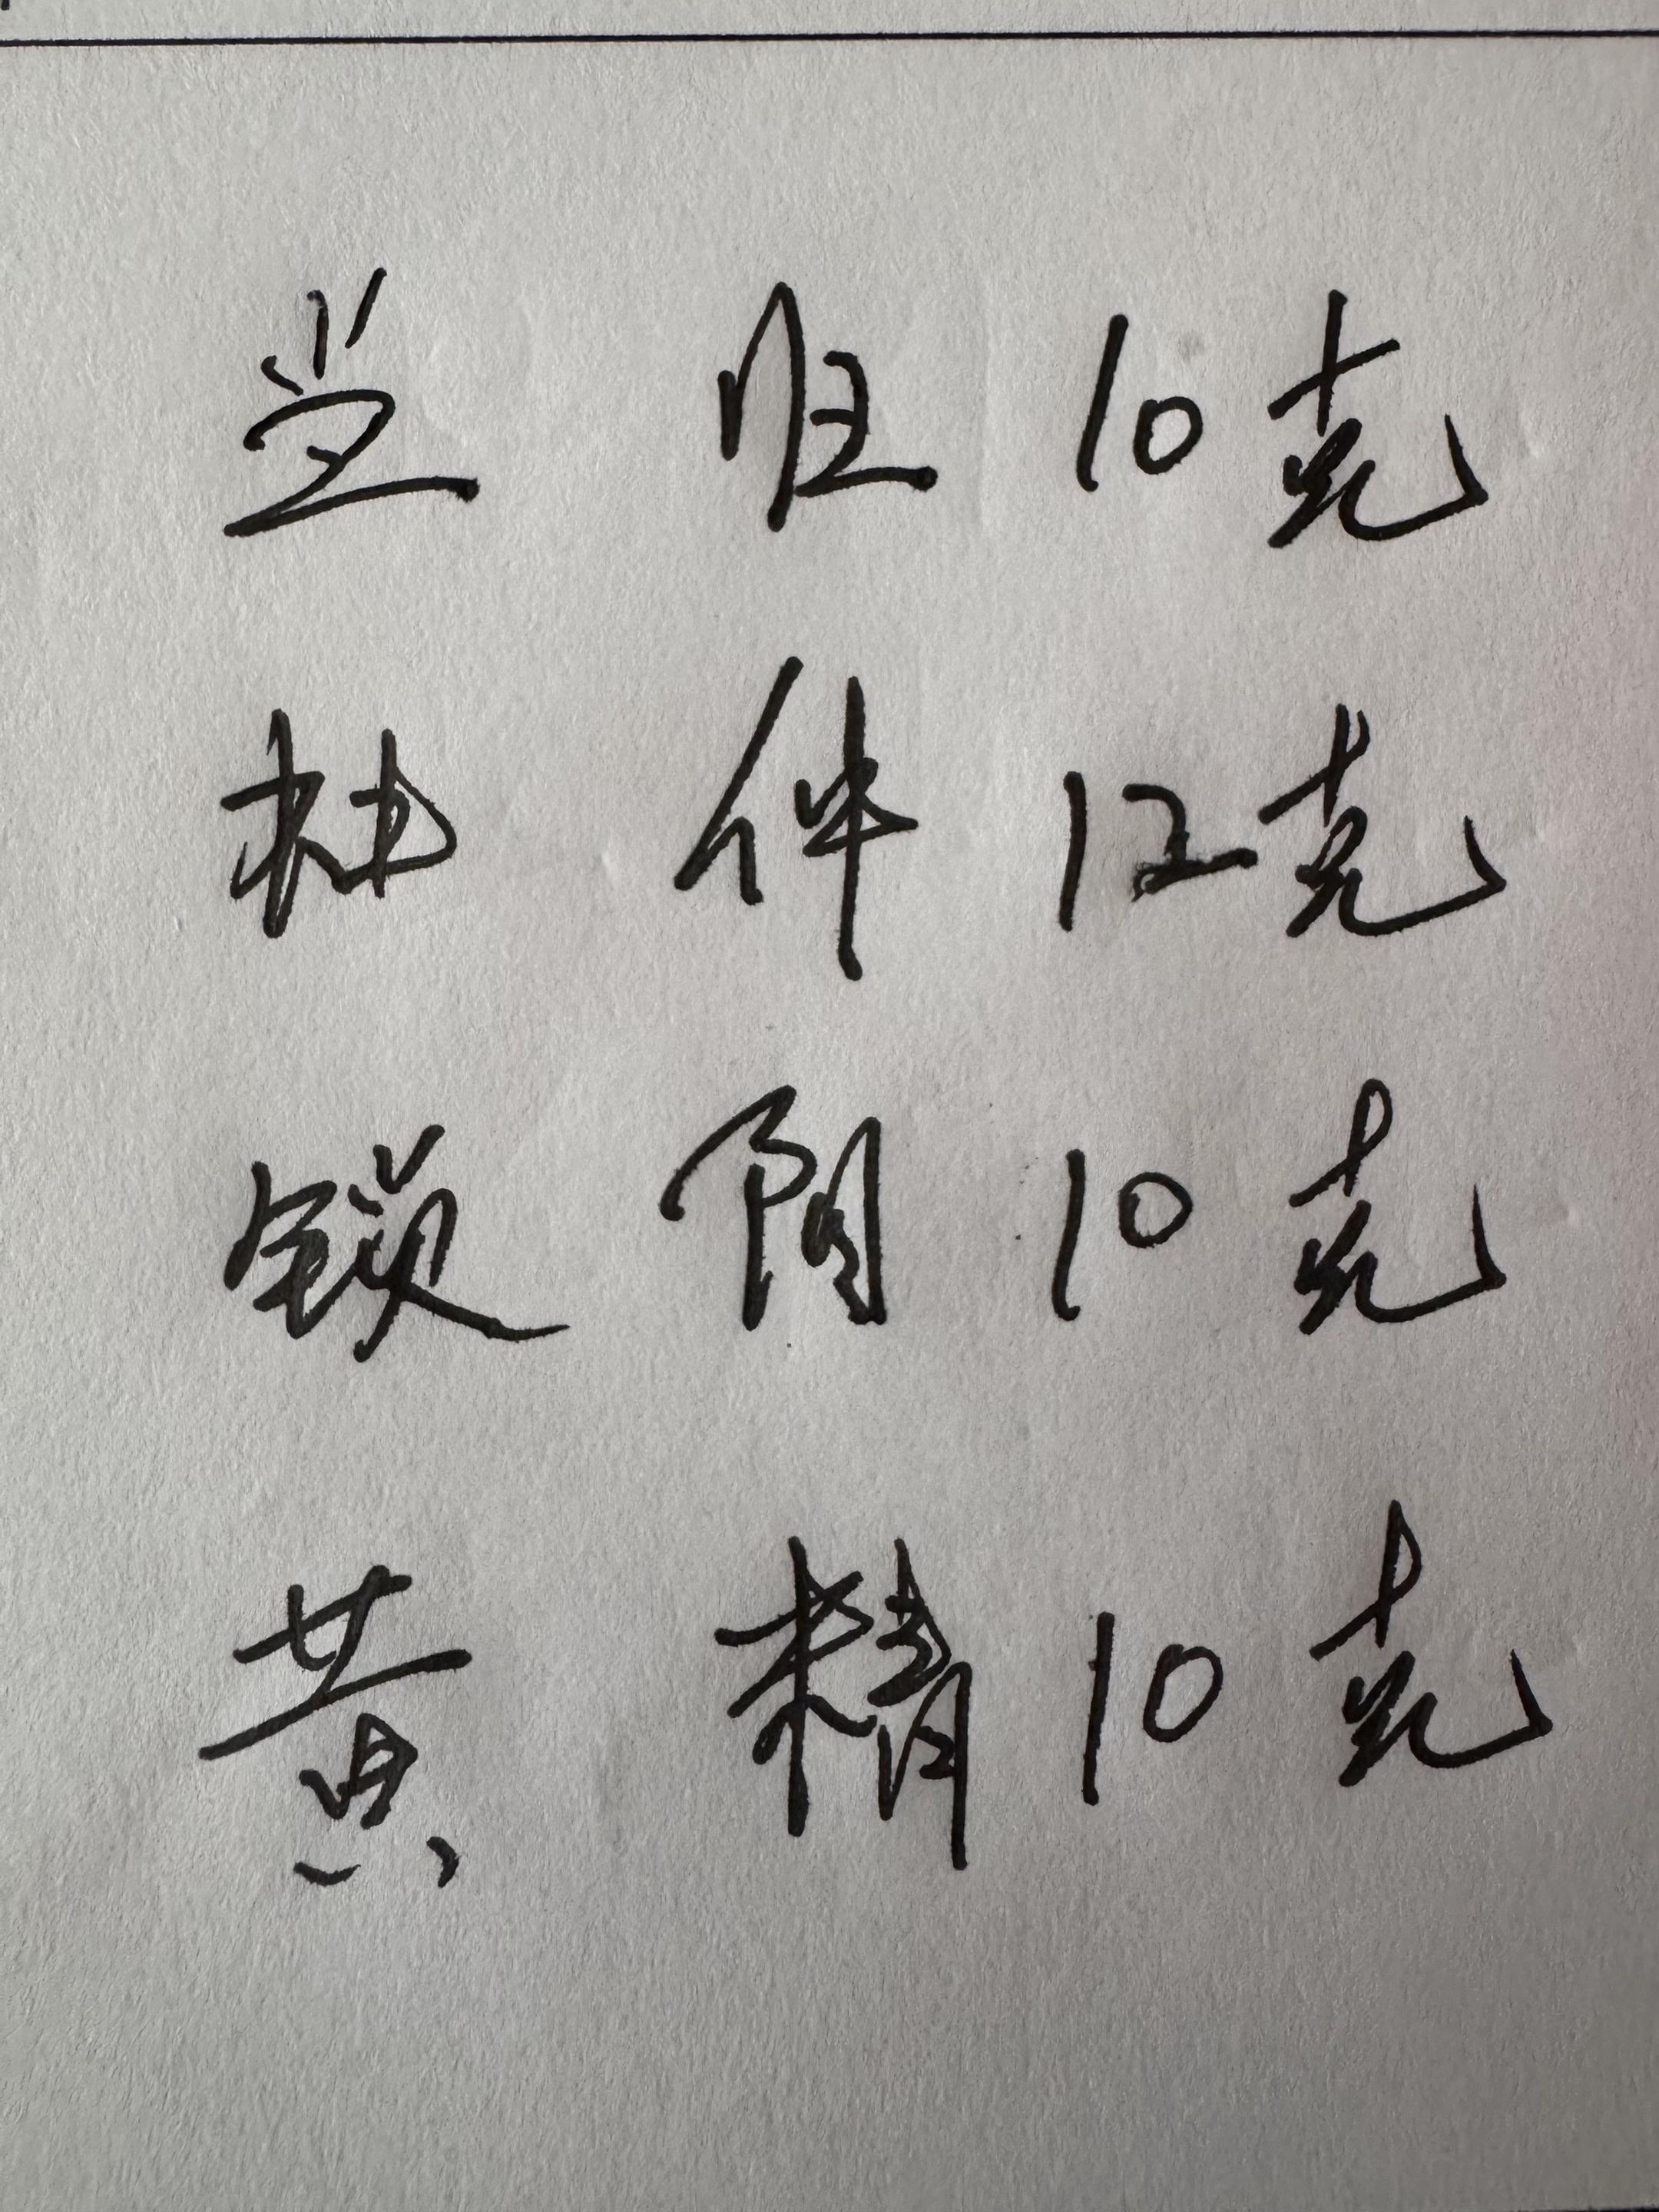 当归10克
杜仲12克
锁阴10克
黄精10克